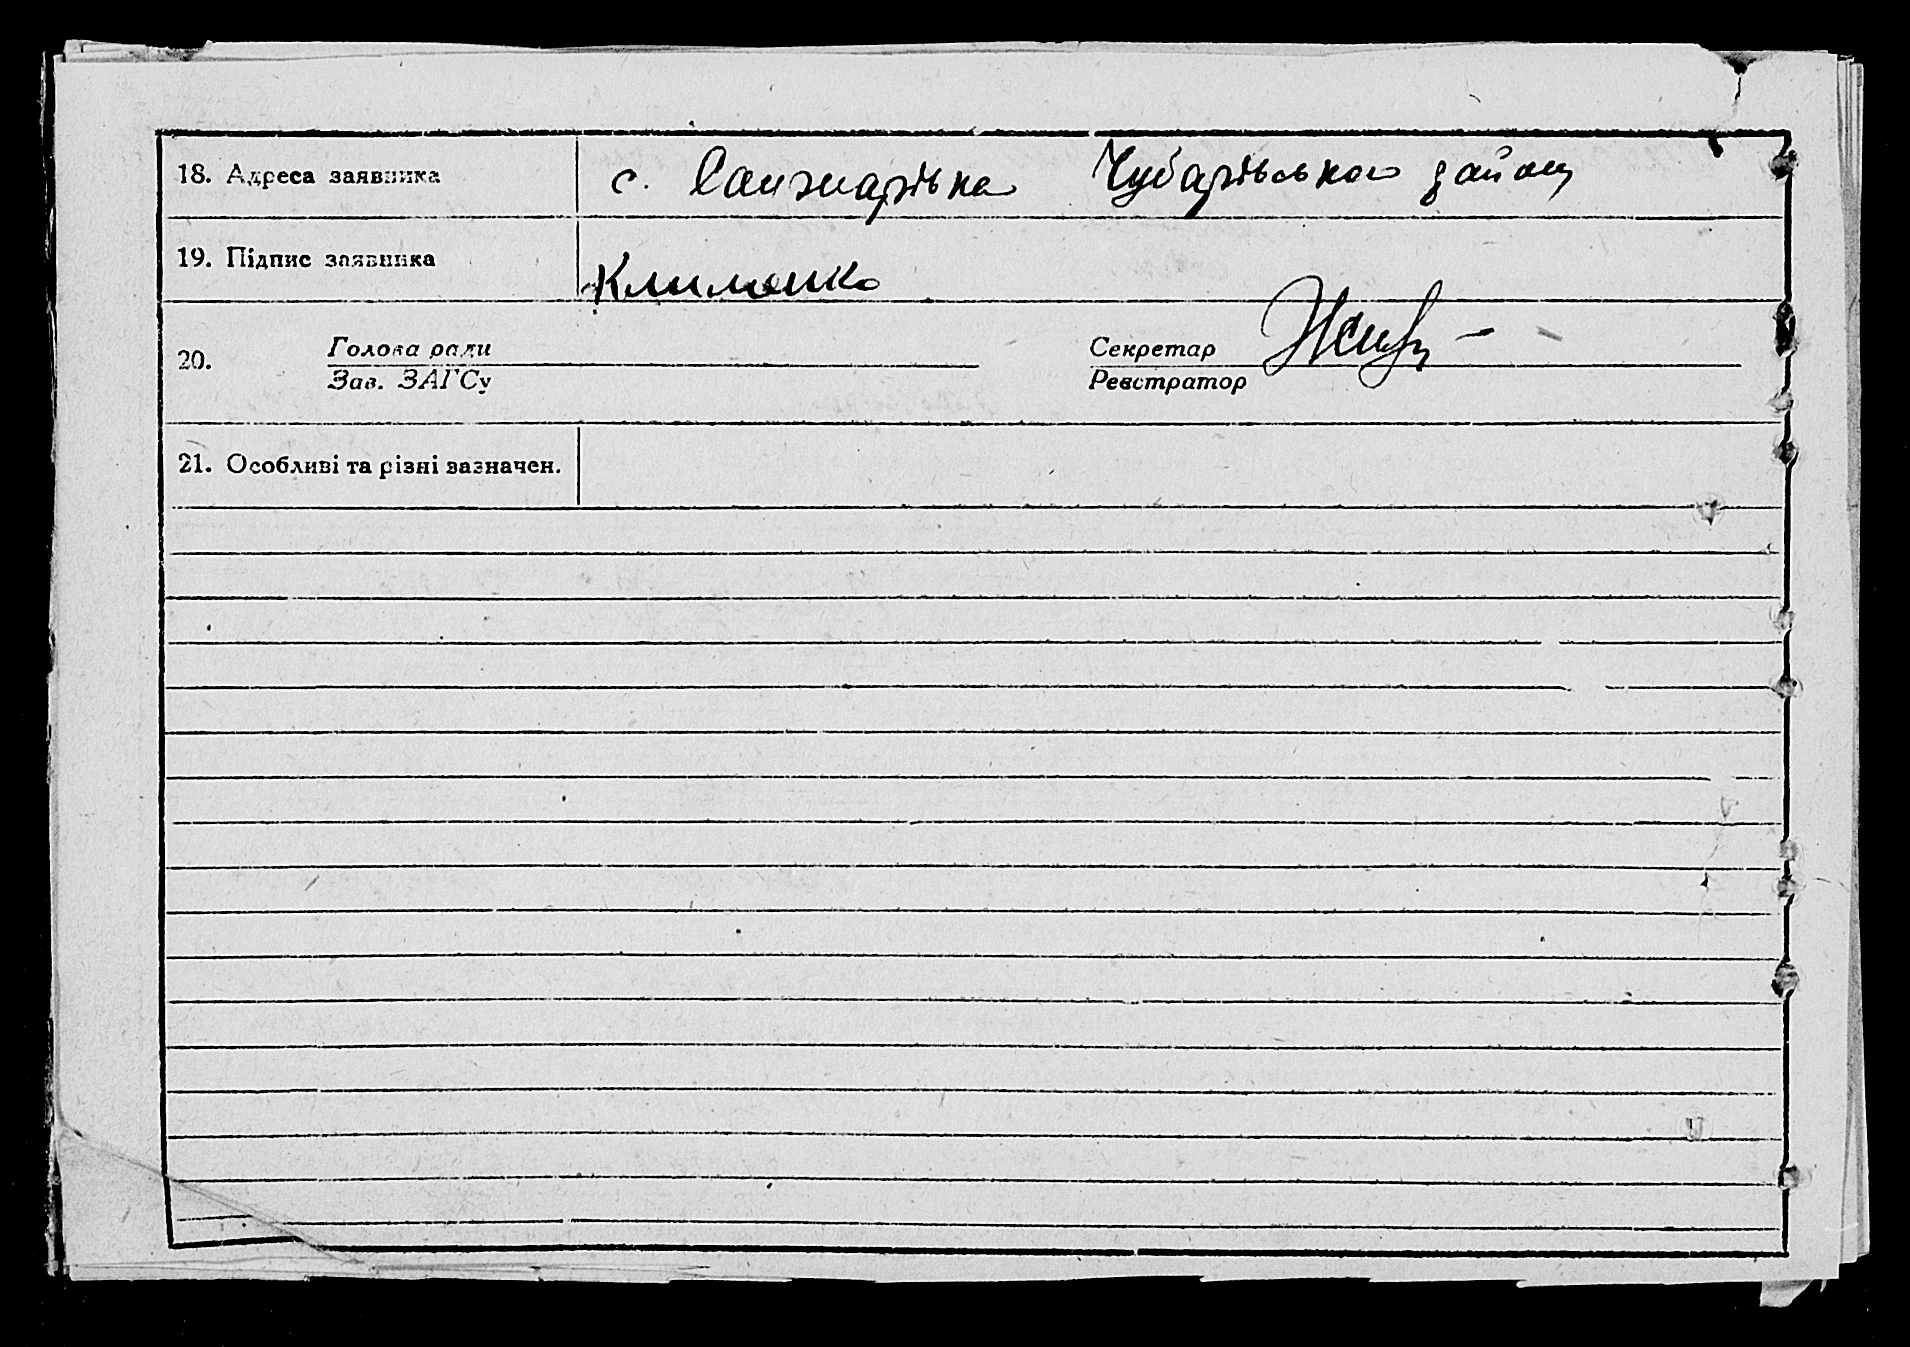 18. Адреса заявника с. Санжарівка Чубарівського району
19. Підпис заявника Клименко
20. Голова ради Секретар
Зав. ЗАГСу Реєстратор
21. Особливі та різні зазначен.